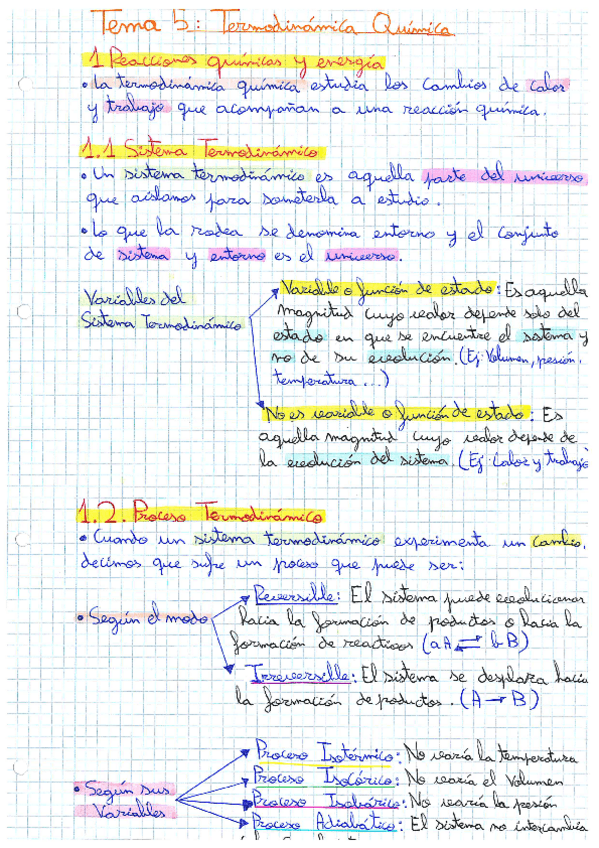 Tema 5: Termodinámica Química
1 Reacciones químicas y energía
• La termodinámica química estudia los cambios de calor
y trabajo que acompañan a una reacción química.
1.1 Sistema Termodinámico
• Un sistema termodinámico es aquella parte del universo
que aislamos para someterla a estudio.
• Lo que la rodea se denomina entorno y el conjunto
de sistema y entorno es el universo.
Variables del
Sistema Termodinámico
Variable o función de estado: Es aquella
magnitud cuyo valor depende solo del
estado en que se encuentre el sistema y
no de su evolución. (Ej: Volumen, presión,
temperatura...)
No es variable o función de estado: Es
aquella magnitud cuyo valor depende de
la evolución del sistema. (Ej: Calor y trabajo
1.2. Proceso Termodinámico
• Cuando un sistema termodinámico experimenta un cambio,
decimos que sufre un proceso que puede ser:
• Según el modo
Reversible: El sistema puede evolucionar
hacia la formación de productos o hacia la
formación de reactivos (aA ⇌ bB)
Irreversible: El sistema se desplaza hacia
la formación de productos. (A → B)
• Según sus
Variables
Proceso Isotérmico: No varía la temperatura
Proceso Isocórico: No varía el Volumen
Proceso Isobárico: No varía la presión
Proceso Adiabático: El sistema no intercambia